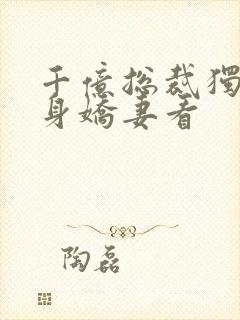 千億總裁獨
身嬌妻看
陶磊